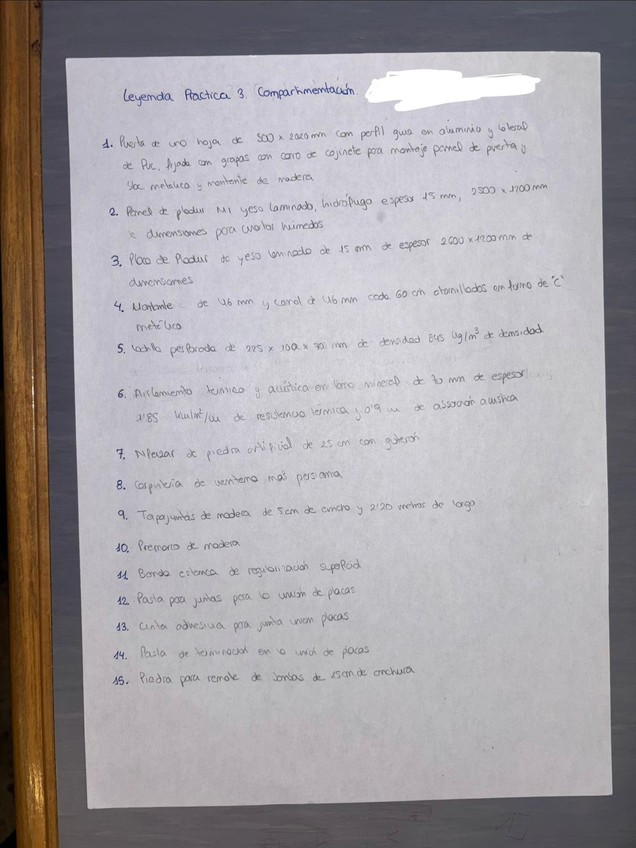 Leyenda Practica 3. Compartimentación
1. Puerta de una hoja de 800 x 2020 mm con perfil guia en aluminio y lateral
de PVC, fijada con grapas con carro de cojinete para montaje panel de puerta y
metalica y montante de madera
2. Panel de pladur M1 yeso laminado, hidrófugo espesor 15 mm, 2500 x 1200 mm
dimensiones para cuartos húmedos
3. Placa de Pladur de yeso laminado de 15 mm de espesor 2600 x 1200 mm de
dimensiones
4. Montante de 46 mm y canal de 46 mm cada 60 cm atornillados en forma de "C"
metálico
5. Ladrillo perforado de 225 x 100 x 70 mm de densidad 845 kg/m³ de densidad
6. Aislamiento termico y acústica en lana mineral de 70 mm de espesor
1'85 de resistencia termica y 0'9 de absorción acustica
7. Alfeizar de piedra artificial de 25 cm con goterón
8. Carpinteria de ventana mas persiana
9. Tapajuntas de madera de 5 cm de ancho y 2'20 metros de largo
10. Premarco de madera
11 Banda estanca de regularización superficial
12. Pasta para juntas para la union de placas
13. Cinta adhesiva para junta union placas
14. Pasta de terminacion en la unión de placas
15. Piedra para remate de de 25 cm de anchura